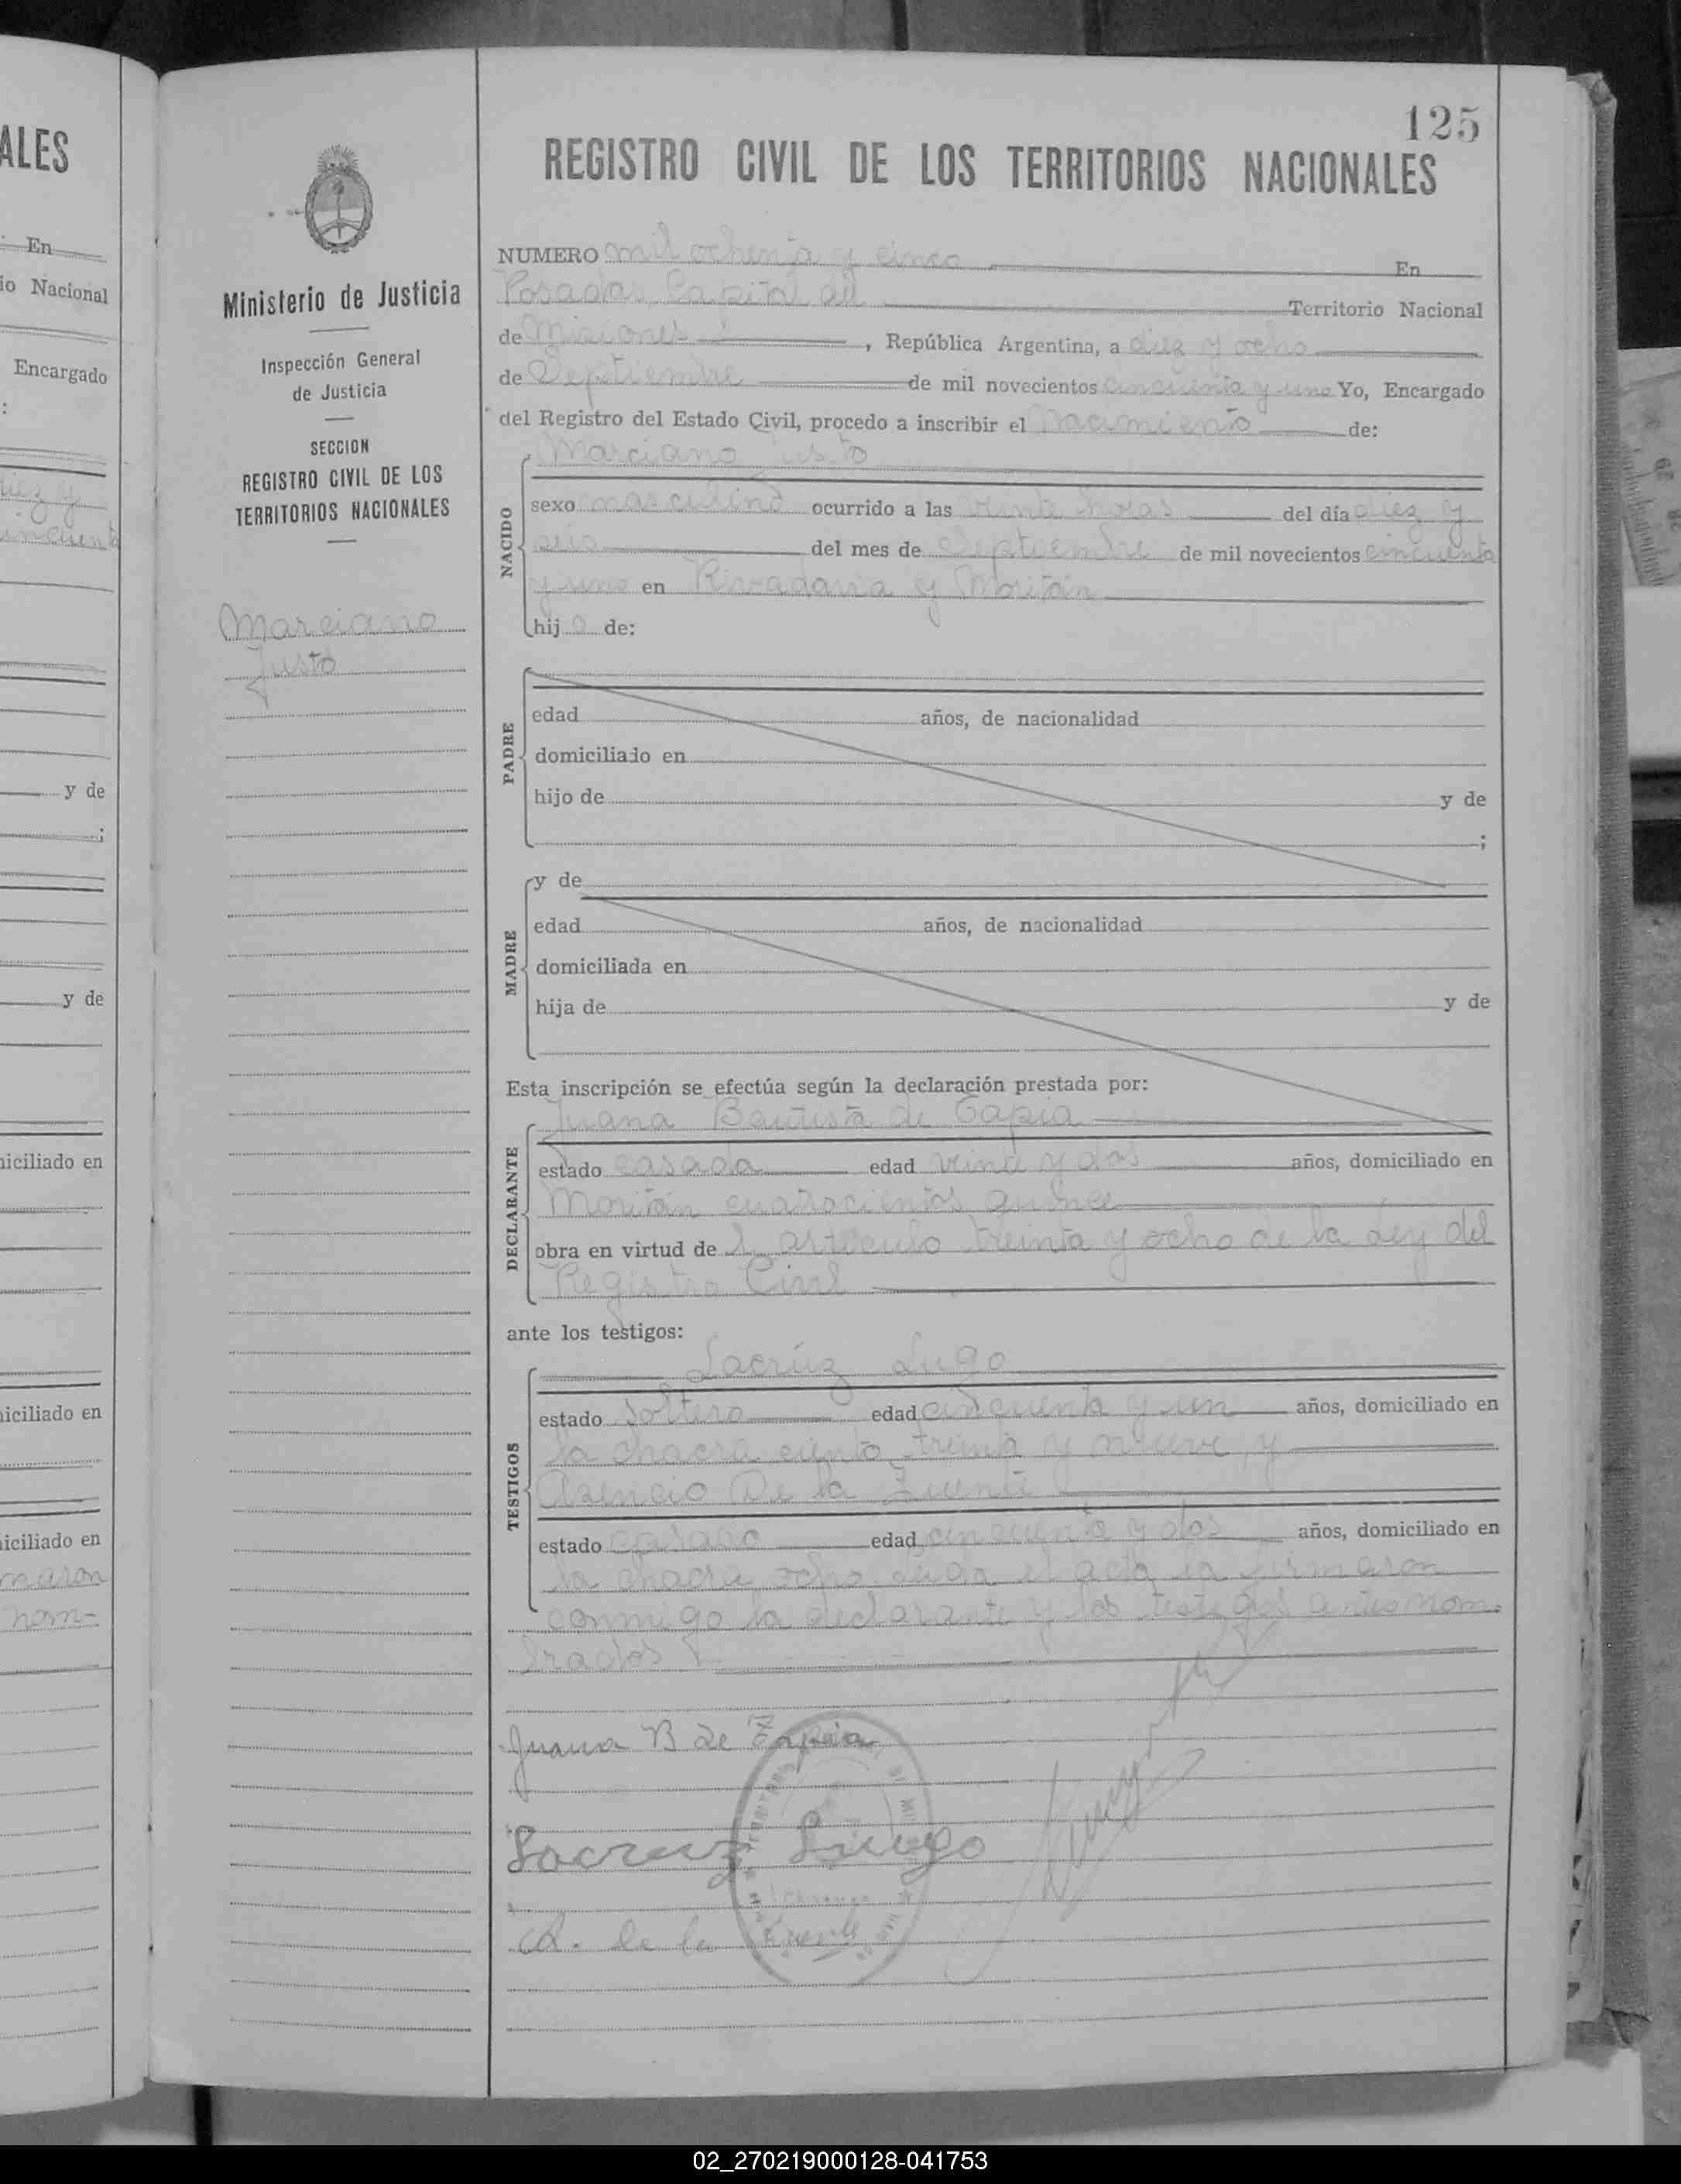 ALES
En
io Nacional
Encargado
:
iez y
incuenta
y de
;
y de
niciliado en
niciliado en
niciliado en
maron
nom-
Ministerio de Justicia
Inspección General
de Justicia
SECCION
REGISTRO CIVIL DE LOS
TERRITORIOS NACIONALES
Marciano
Justo
125
REGISTRO CIVIL DE LOS TERRITORIOS NACIONALES
NUMERO mil ochenta y cinco En
Posadas, Capital del Territorio Nacional
de Misiones, República Argentina, a diez y ocho
de Septiembre de mil novecientos cincuenta y uno Yo, Encargado
del Registro del Estado Civil, procedo a inscribir el nacimiento de:
Marciano Justo
NACIDO
sexo masculino ocurrido a las veinte horas del día diez y
seis del mes de Septiembre de mil novecientos cincuenta
y uno en Rivadavia y Moritán
hijo de:
PADRE
edad años, de nacionalidad
domiciliado en
hijo de y de
;
MADRE
y de
edad años, de nacionalidad
domiciliada en
hija de y de
Esta inscripción se efectúa según la declaración prestada por:
DECLARANTE
Juana Bautista de Tapia
estado casada edad veinte y dos años, domiciliado en
Moritán cuatrocientos quince
obra en virtud de l artículo treinta y ocho de la Ley del
Registro Civil
ante los testigos:
TESTIGOS
Lacrúz Lugo
estado soltero edad cincuenta y un años, domiciliado en
la chacra ciento treinta y nueve y
Asencio De la Fuente
estado casado edad cincuenta y dos años, domiciliado en
la chacra ocho. Leída el acta la firmaron
conmigo la declarante y los testigos antes nom-
brados
Juana B de Tapia
Lacruz Lugo
A. de la Fuente
02_270219000128-041753